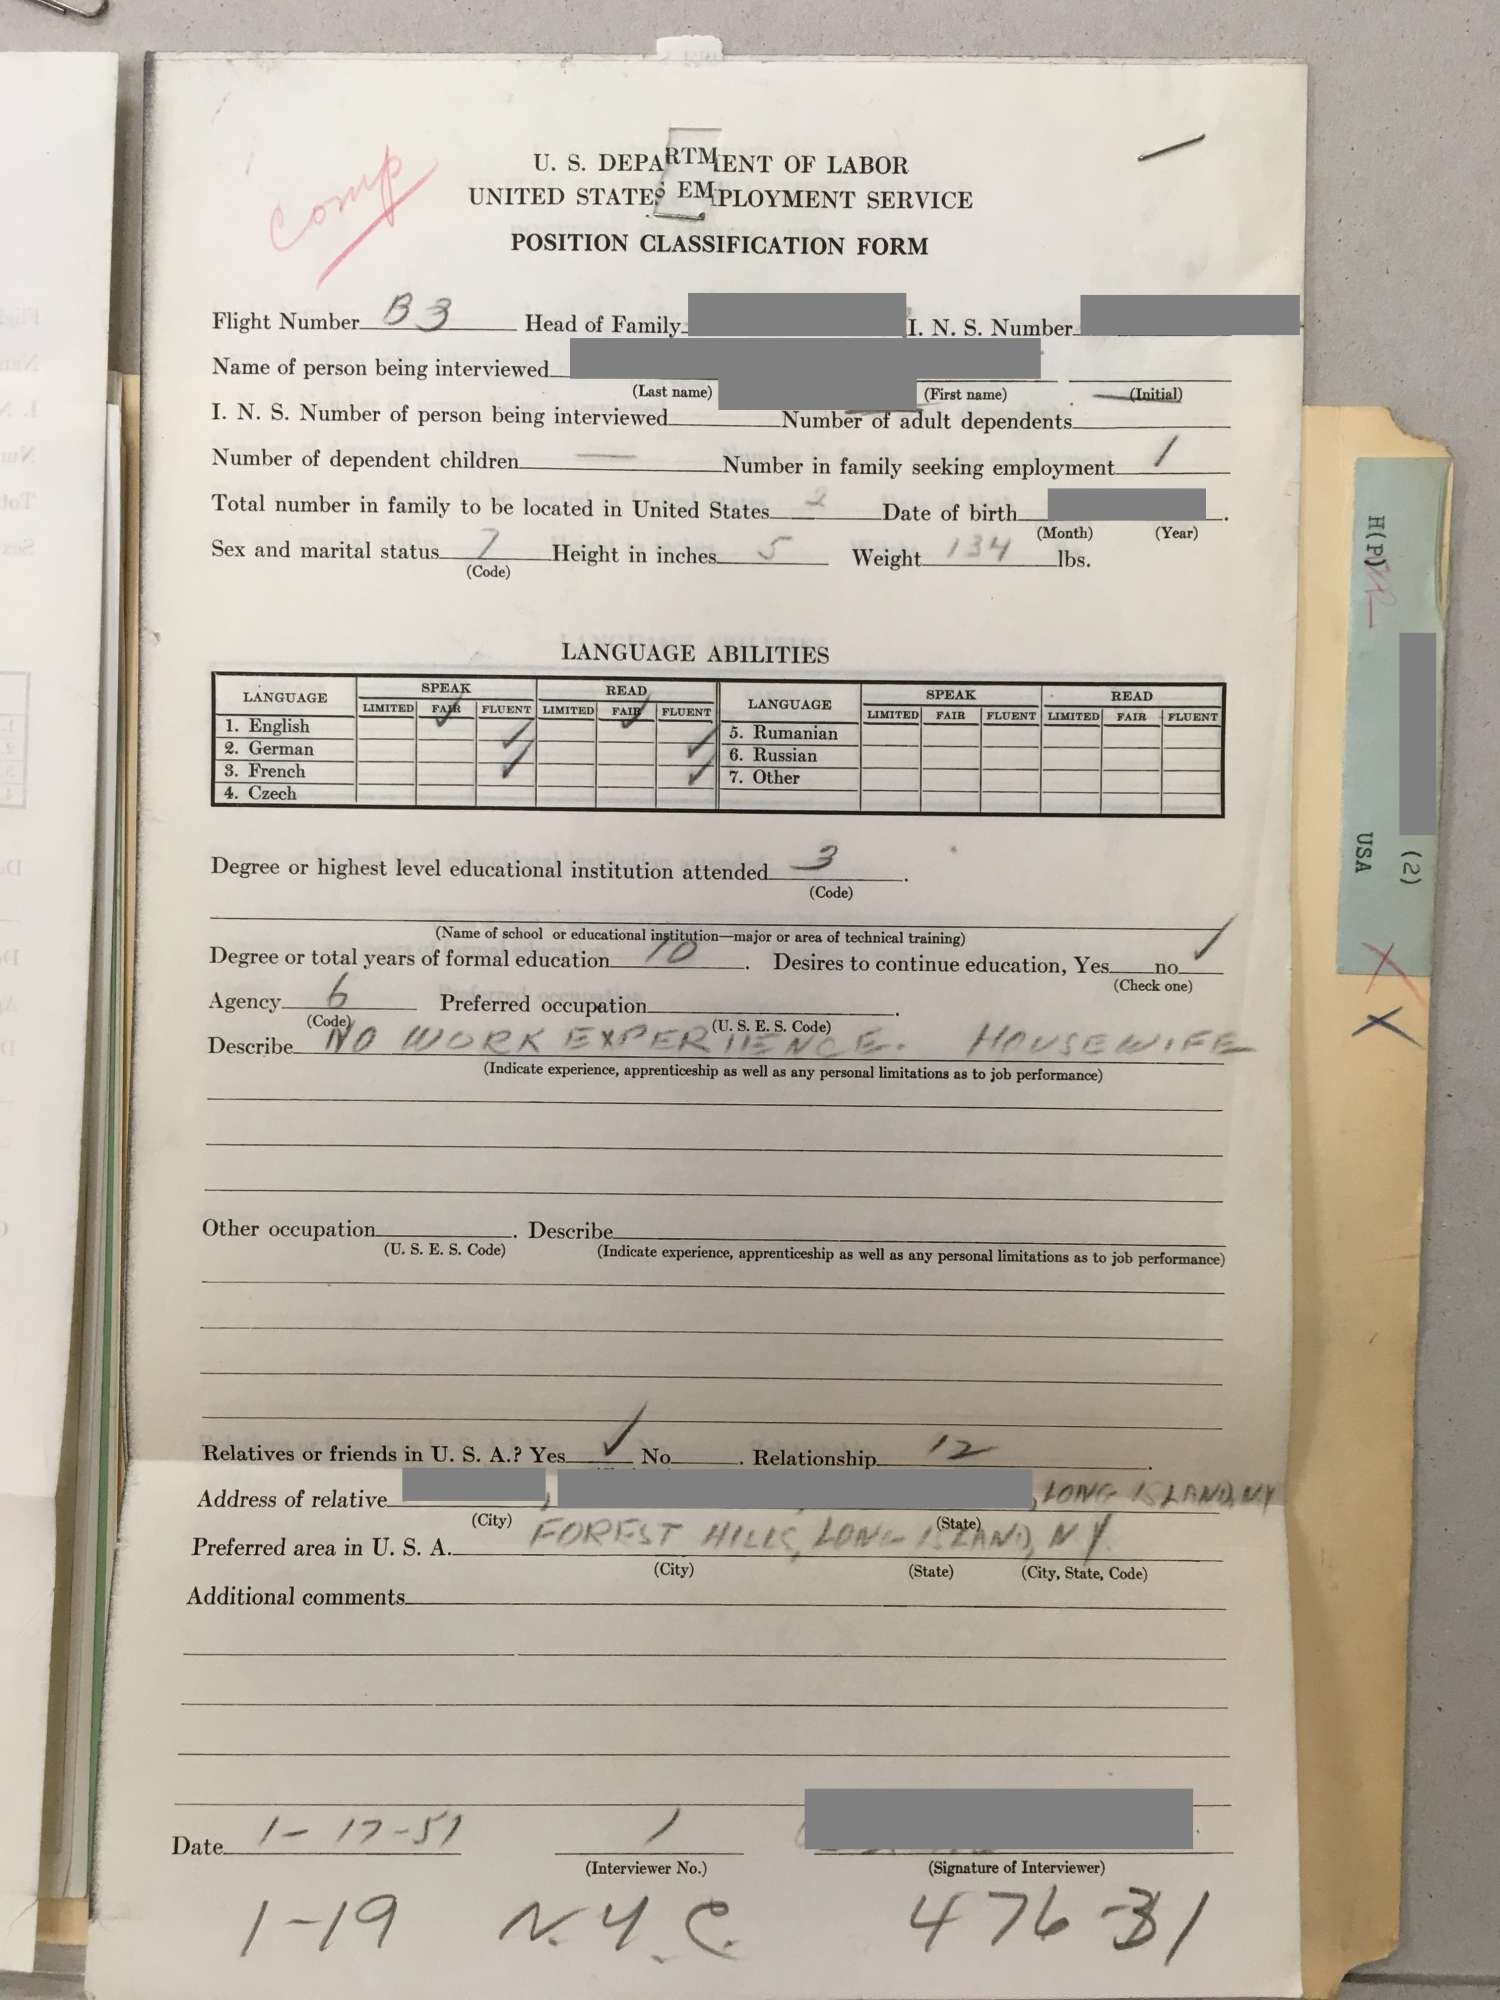 comp
U. S. DEPARTMENT OF LABOR
UNITED STATES EMPLOYMENT SERVICE
POSITION CLASSIFICATION FORM
Flight Number B3 Head of Family I. N. S. Number
Name of person being interviewed
(Last name) (First name) (Initial)
I. N. S. Number of person being interviewed Number of adult dependents
Number of dependent children — Number in family seeking employment 1
Total number in family to be located in United States 2 Date of birth .
(Month) (Year)
Sex and marital status 7 Height in inches 5 Weight 134 lbs.
(Code)
LANGUAGE ABILITIES
LANGUAGE SPEAK READ LANGUAGE SPEAK READ
LIMITED FAIR FLUENT LIMITED FAIR FLUENT LIMITED FAIR FLUENT LIMITED FAIR FLUENT
1. English ✓ ✓ 5. Rumanian
2. German ✓ ✓ 6. Russian
3. French ✓ ✓ 7. Other
4. Czech
Degree or highest level educational institution attended 3 .
(Code)
(Name of school or educational institution—major or area of technical training)
Degree or total years of formal education 10 . Desires to continue education, Yes no ✓
(Check one)
Agency 6 Preferred occupation .
(Code) (U. S. E. S. Code)
Describe NO WORK EXPERIENCE. HOUSEWIFE
(Indicate experience, apprenticeship as well as any personal limitations as to job performance)
Other occupation . Describe
(U. S. E. S. Code) (Indicate experience, apprenticeship as well as any personal limitations as to job performance)
Relatives or friends in U. S. A.? Yes ✓ No . Relationship 12 .
Address of relative , , LONG ISLAND, NY
(City) (State)
Preferred area in U. S. A. FOREST HILLS, LONG ISLAND, NY.
(City) (State) (City, State, Code)
Additional comments
Date 1-17-57 1
(Interviewer No.) (Signature of Interviewer)
1-19 N.Y.C. 476-31
H(P)
USA
(2)
X
X